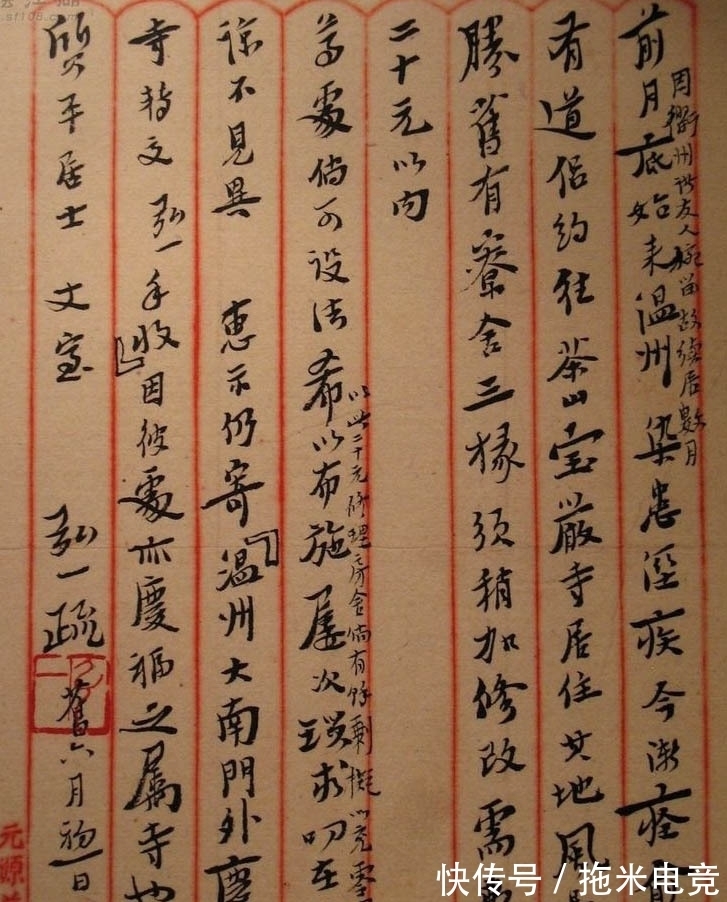 前月底始来温州染患溼疾今漸痊
因衢州諸友人挽留故續居數月
有道侶約往茶山宝嚴寺居住其地風
勝舊有寮舍三椽須稍加修改需
二十元以内
尊處倘可設法希以布施屢次瑣求叨在
以此二十元修理房舍倘有餘剩擬以充零
諒不見異 惠示仍寄『温州大南門外慶
寺轉交弘一手收』因彼處亦慶福之属寺也
質平居士 丈室 弘一疏 舊六月初一日
sf108.com
快传号/拖米电竞